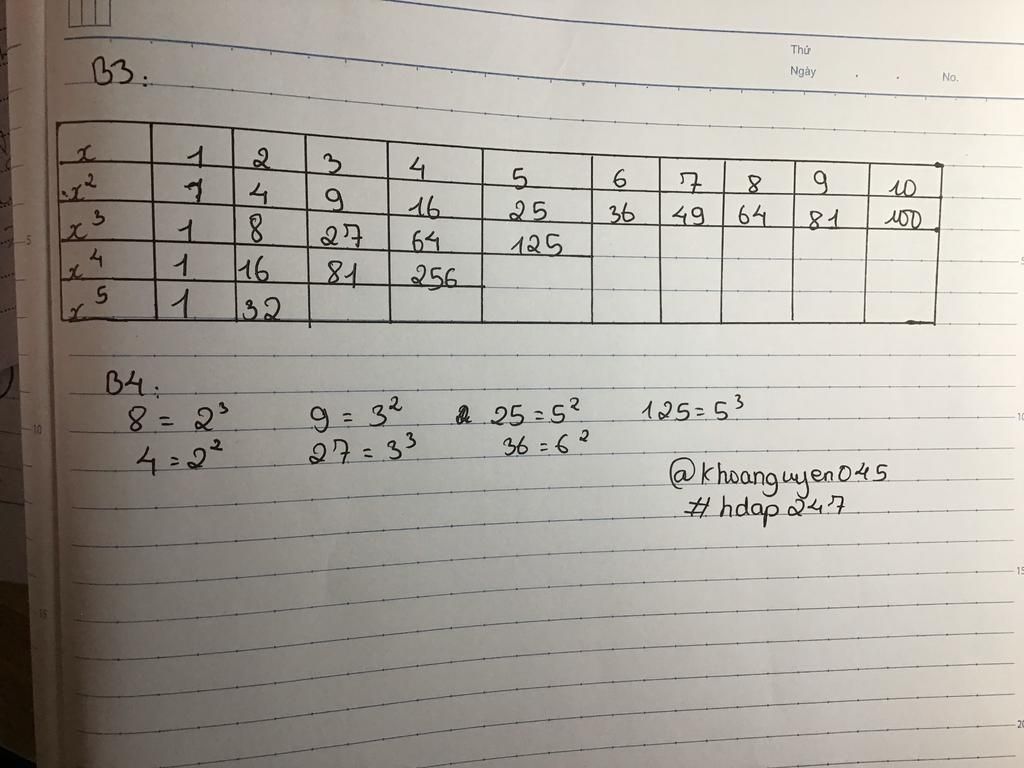 Thứ
Ngày . . No.
B3:
x 1 2 3 4 5 6 7 8 9 10
x² 1 4 9 16 25 36 49 64 81 100
x³ 1 8 27 64 125
x⁴ 1 16 81 256
x⁵ 1 32
B4:
8 = 2³ 9 = 3² 25 = 5² 125 = 5³
4 = 2² 27 = 3³ 36 = 6²
@khoanguyen045
#hdap247
5
10
15
5
10
15
20